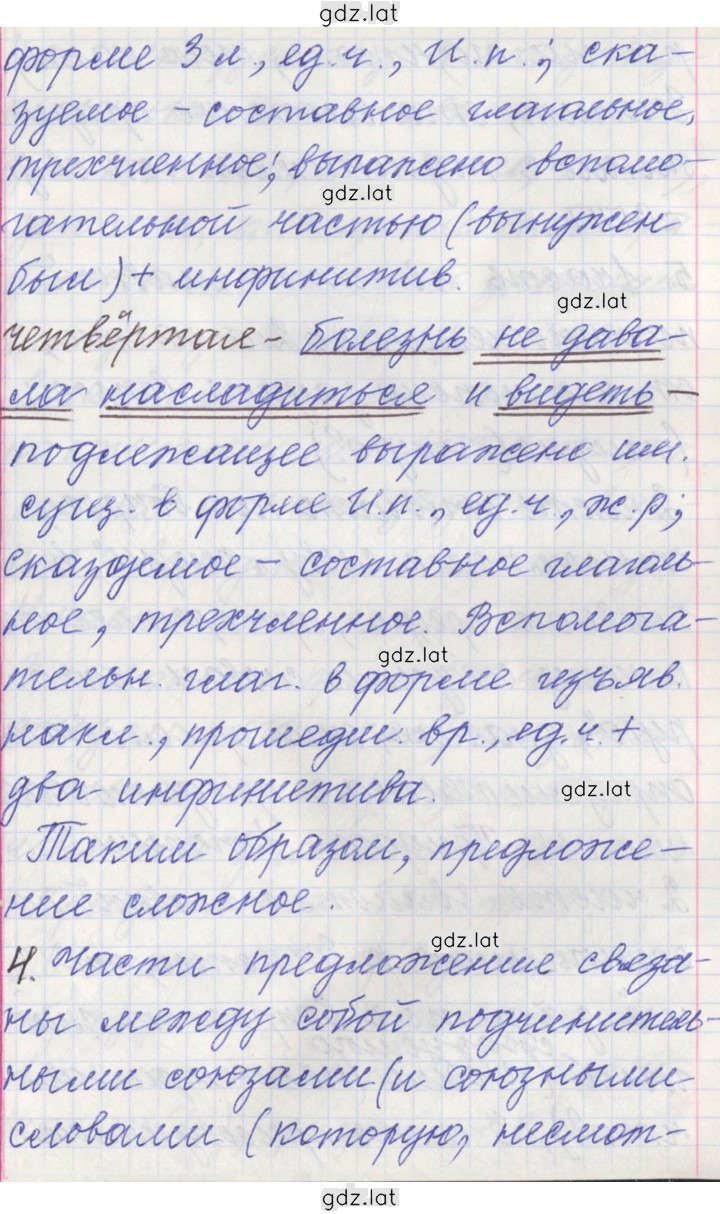 gdz.lat
форме 3 л., ед.ч., И.п.; ска-
зуемое - составное глагольное,
трехчленное; выражено вспомо-
gdz.lat
гательной частью (вынужен
был) + инфинитив.
gdz.lat
четвёртая - болезнь не дава-
ла насладиться и видеть -
подлежащее выражено им.
сущ. в форме И.п., ед.ч., ж.р;
сказуемое - составное глаголь-
ное, трехчленное. Вспомога-
gdz.lat
тельн. глаг. в форме изъяв.
накл., прошедш. вр., ед.ч. +
два инфинитива.
gdz.lat
Таким образом, предложе-
ние сложное.
gdz.lat
4. Части предложение связа-
ны между собой подчинитель-
ными союзами (и союзными
словами (которую, несмот-
gdz.lat